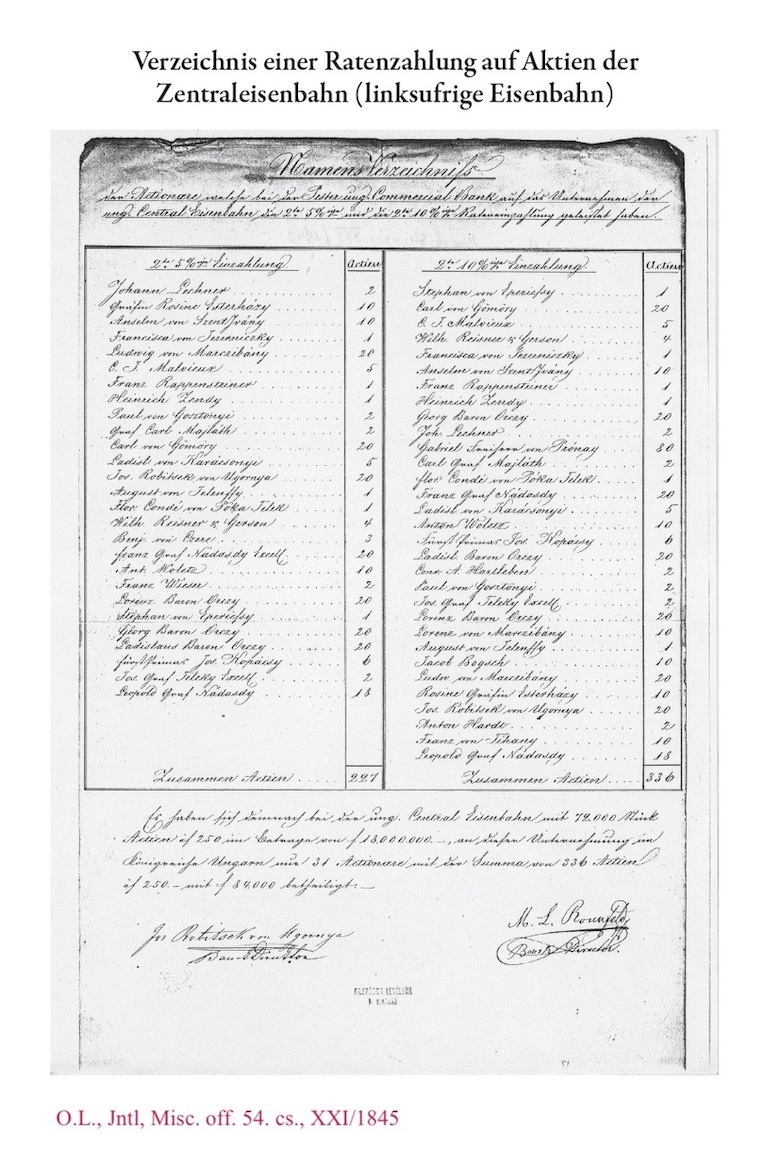 Verzeichnis einer Ratenzahlung auf Aktien der
Zentraleisenbahn (linksufrige Eisenbahn)
Namens Verzeichniss
der Actionäre welche bei der Pester ung. Commercial Bank auf das Unternehmen der
ung. Central Eisenbahn die 2te 5% und die 2te 10% Rateneinzahlung geleistet haben.
2te 5% Einzahlung. Actien
Johann Lechner 2
Gräfin Rosine Esterházy 10
Anselm von SzentIvány 10
Francisca von Jeszeniczky 1
Ludwig von Marczibány 20
C. J. Malvieux 5
Franz Rappensteiner 1
Heinrich Zendy 1
Paul von Gosztonyi 2
Graf Carl Majláth 2
Carl von Gömöry 20
Ladisl von Karácsonyi 5
Jos. Robitsek von Ugornya 20
August von Jelenffy 1
Flor. Condé von Póka Telek 1
Wilh. Reisner & Gerson 4
Benj. von Czere 3
Franz Graf Nádasdy Excell. 20
Ant. Wöletz 10
Franz Wieser 2
Lorenz Baron Orczy 20
Stephan von Eperiessy 1
Georg Baron Orczy 20
Ladislaus Baron Orczy 20
Fürst Primas Jos. Kopácsy 6
Jos. Graf Teleky Excell. 2
Leopold Graf Nádasdy 18
Zusammen Actien 227
2te 10% Einzahlung. Actien
Stephan von Eperiessy 1
Carl von Gömöry 20
C. J. Malvieux 5
Wilh. Reisner & Gerson 4
Francisca von Jeszeniczky 1
Anselm von SzentIvány 10
Franz Rappensteiner 1
Heinrich Zendy 1
Georg Baron Orczy 20
Joh. Lechner 2
Gabriel Freiherr von Prónay 80
Carl Graf Majláth 2
Flor. Condé von Póka Telek 1
Franz Graf Nádasdy 20
Ladisl von Karácsonyi 5
Anton Wöletz 10
Fürst Primas Jos. Kopácsy 6
Ladisl. Baron Orczy 20
Conr. A. Hartleben 2
Paul von Gosztonyi 2
Jos. Graf Teleky Excell. 2
Lorenz Baron Orczy 20
Lorenz von Marczibány 10
August von Jelenffy 1
Jacob Bogsch 10
Ludw von Marczibány 20
Rosine Gräfin Esterházy 10
Jos. Robitsek von Ugornya 20
Anton Hardt 2
Franz von Tihany 10
Leopold Graf Nádasdy 18
Zusammen Actien 336
Es haben sich demnach bei der ung. Central Eisenbahn mit 72.000 Stück
Actien à f 250 im Betrage von f 18,000.000.– an dieser Unternehmung im
Königreiche Ungarn nur 31 Actionäre mit der Summa von 336 Actien
à f 250.– mit f 84.000 betheiligt.–
Jos Robitsek von Ugornya
Bank Direktor
M. L.
Bank Director.
O.L., Jntl, Misc. off. 54. cs., XXI/1845